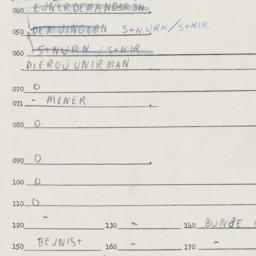 040
050 S+NVRN/S+NIR
S+NVRN / S+NIR
060
DIEROV UNIRMAN
070 0
071 - MENER
080 0
090 0
100 0
110 0
120 - 130 - 140 BUNDE
150 BEVNIS+ 160 - 170 -